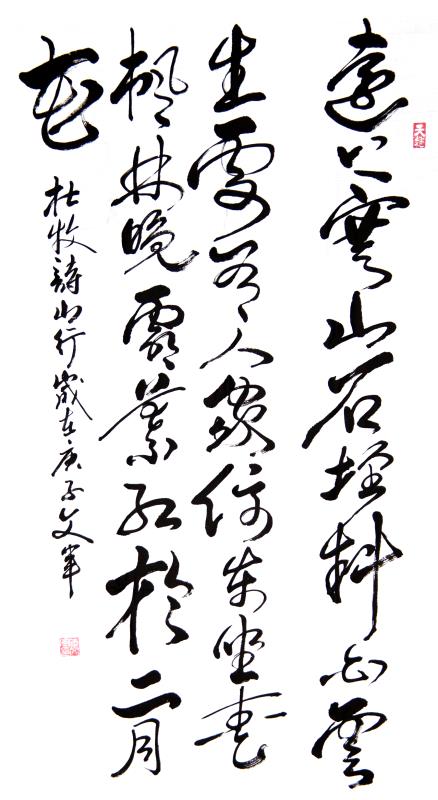 遠上寒山石徑斜白雲
生處有人家停車坐愛
楓林晚霜葉紅於二月
花
杜牧詩山行歲在庚子文